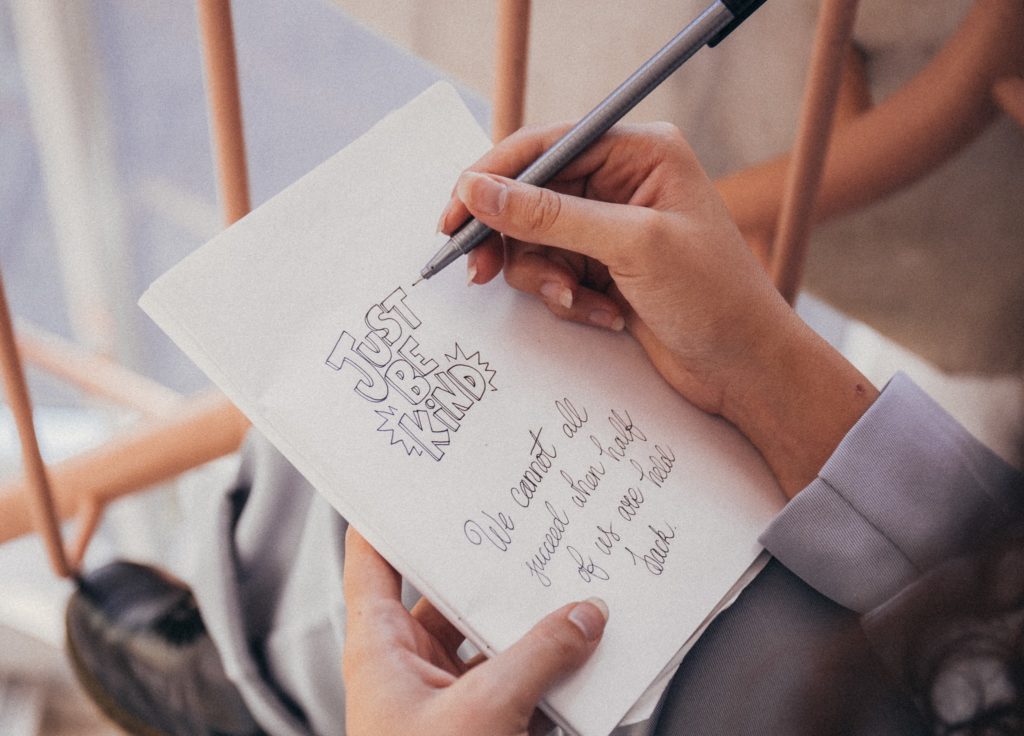 JUST
BE
KiND
We cannot all
succeed when half
of us are held
back.